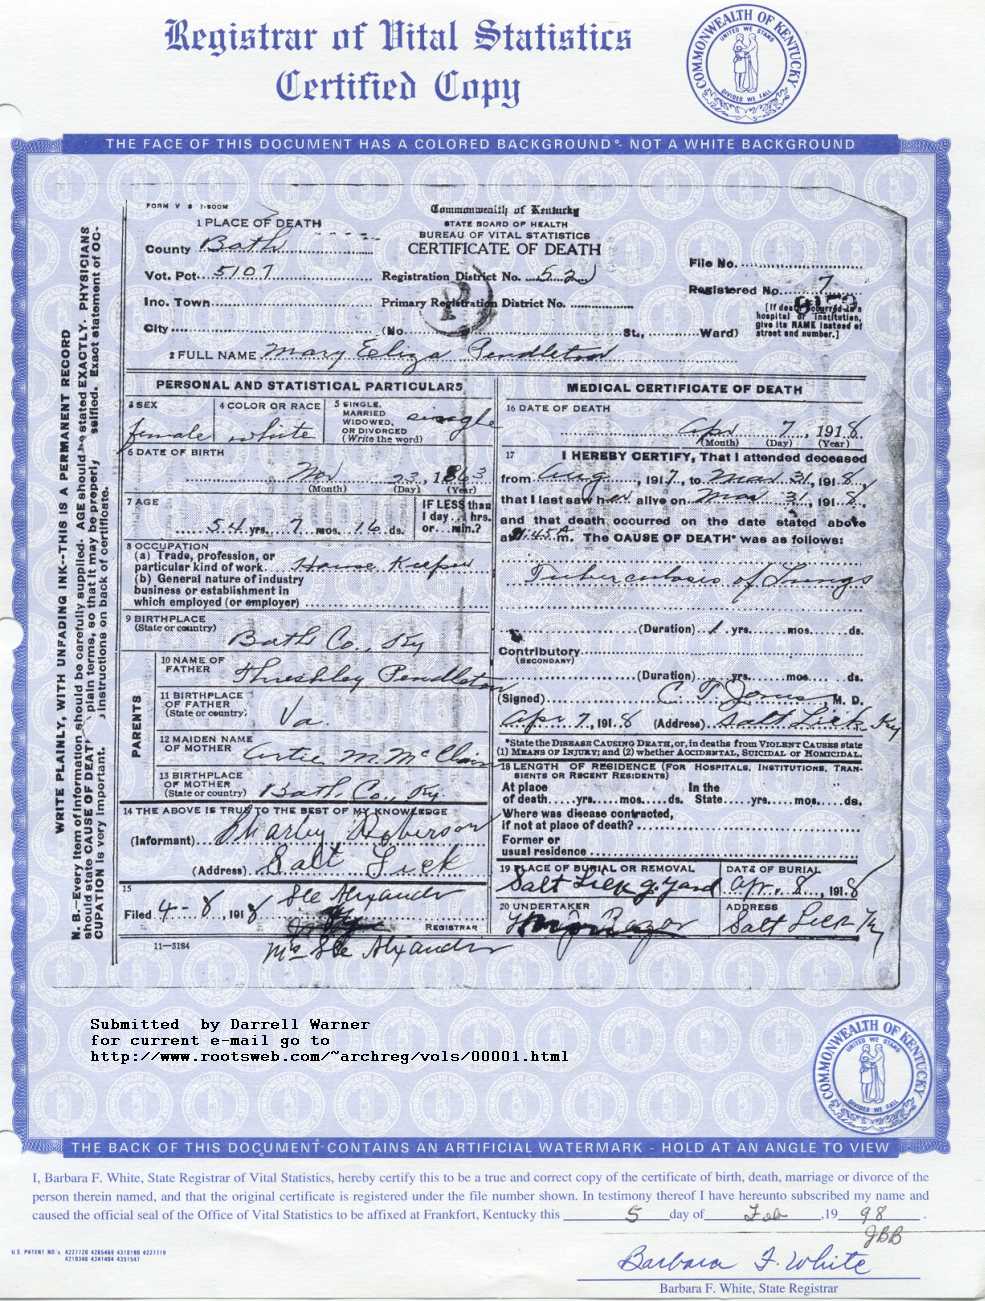 Registrar of Vital Statistics
Certified Copy
COMMONWEALTH OF KENTUCKY
UNITED WE STAND
DIVIDED WE FALL
THE FACE OF THIS DOCUMENT HAS A COLORED BACKGROUND - NOT A WHITE BACKGROUND
WRITE PLAINLY, WITH UNFADING INK--THIS IS A PERMANENT RECORD
N. B.--Every item of information should be carefully supplied. AGE should be stated EXACTLY. PHYSICIANS
should state CAUSE OF DEATH plain terms, so that it may be properly classified. Exact statement of OC-
CUPATION is very important. instructions on back of certificate.
FORM V S 1-500M
Commonwealth of Kentucky
STATE BOARD OF HEALTH
BUREAU OF VITAL STATISTICS
CERTIFICATE OF DEATH
1 PLACE OF DEATH
County Bath
Vot. Pct. 5107
Registration District No. 52
File No.
Registered No. 7
Inc. Town
Primary Registration District No.
[If death occurred in a
hospital or institution,
give its NAME instead of
street and number.]
City (No St., Ward)
2 FULL NAME Mary Eliza Pendleton
PERSONAL AND STATISTICAL PARTICULARS
3 SEX
female
4 COLOR OR RACE
white
5 SINGLE,
MARRIED
WIDOWED,
OR DIVORCED
(Write the word)
single
6 DATE OF BIRTH
Nov 23, 1863
(Month) (Day) (Year)
7 AGE
54 yrs. 7 mos. 16 ds.
IF LESS than
1 day...hrs.
or...min.?
8 OCCUPATION
(a) Trade, profession, or
particular kind of work House Keeper
(b) General nature of industry
business or establishment in
which employed (or employer)
9 BIRTHPLACE
(State or country)
Bath Co., Ky
PARENTS
10 NAME OF
FATHER
Pendleton
11 BIRTHPLACE
OF FATHER
(State or country)
Va.
12 MAIDEN NAME
OF MOTHER
M. McClain
13 BIRTHPLACE
OF MOTHER
(State or country)
Bath, Co., Ky.
14 THE ABOVE IS TRUE TO THE BEST OF MY KNOWLEDGE
(Informant) Sharley Roberson
(Address) Salt Lick
15
Filed 4-8, 1918
Alexander
REGISTRAR
11-3184
Alexander
MEDICAL CERTIFICATE OF DEATH
16 DATE OF DEATH
Apr 7, 1918
(Month) (Day) (Year)
17 I HEREBY CERTIFY, That I attended deceased
from Aug, 1917, to Mar 31, 1918,
that I last saw her alive on Mar 31, 1918,
and that death occurred on the date stated above
at :45 A m. The CAUSE OF DEATH* was as follows:
Tuberculosis of Lungs
(Duration) 1 yrs. mos. ds.
Contributory
(SECONDARY)
(Duration) yrs. mos. ds.
(Signed) C. T. Jones M. D.
Apr 7, 1918 (Address) Salt Lick Ky
*State the DISEASE CAUSING DEATH, or, in deaths from VIOLENT CAUSES state
(1) MEANS OF INJURY; and (2) whether ACCIDENTAL, SUICIDAL or HOMICIDAL.
18 LENGTH OF RESIDENCE (FOR HOSPITALS, INSTITUTIONS, TRAN-
SIENTS OR RECENT RESIDENTS)
At place
of death yrs. mos. ds.
In the
State yrs. mos. ds.
Where was disease contracted,
if not at place of death?
Former or
usual residence
19 PLACE OF BURIAL OR REMOVAL
Salt Lick g. yard
DATE OF BURIAL
Apr. 8, 1918
20 UNDERTAKER
Razor
ADDRESS
Salt Lick Ky
Submitted by Darrell Warner
for current e-mail go to
http://www.rootsweb.com/~archreg/vols/00001.html
COMMONWEALTH OF KENTUCKY
UNITED WE STAND
DIVIDED WE FALL
THE BACK OF THIS DOCUMENT CONTAINS AN ARTIFICIAL WATERMARK - HOLD AT AN ANGLE TO VIEW
I, Barbara F. White, State Registrar of Vital Statistics, hereby certify this to be a true and correct copy of the certificate of birth, death, marriage or divorce of the
person therein named, and that the original certificate is registered under the file number shown. In testimony thereof I have hereunto subscribed my name and
caused the official seal of the Office of Vital Statistics to be affixed at Frankfort, Kentucky this 5 day of Feb, 19 98.
JBB
U.S. PATENT NO's
Barbara F. White
Barbara F. White, State Registrar